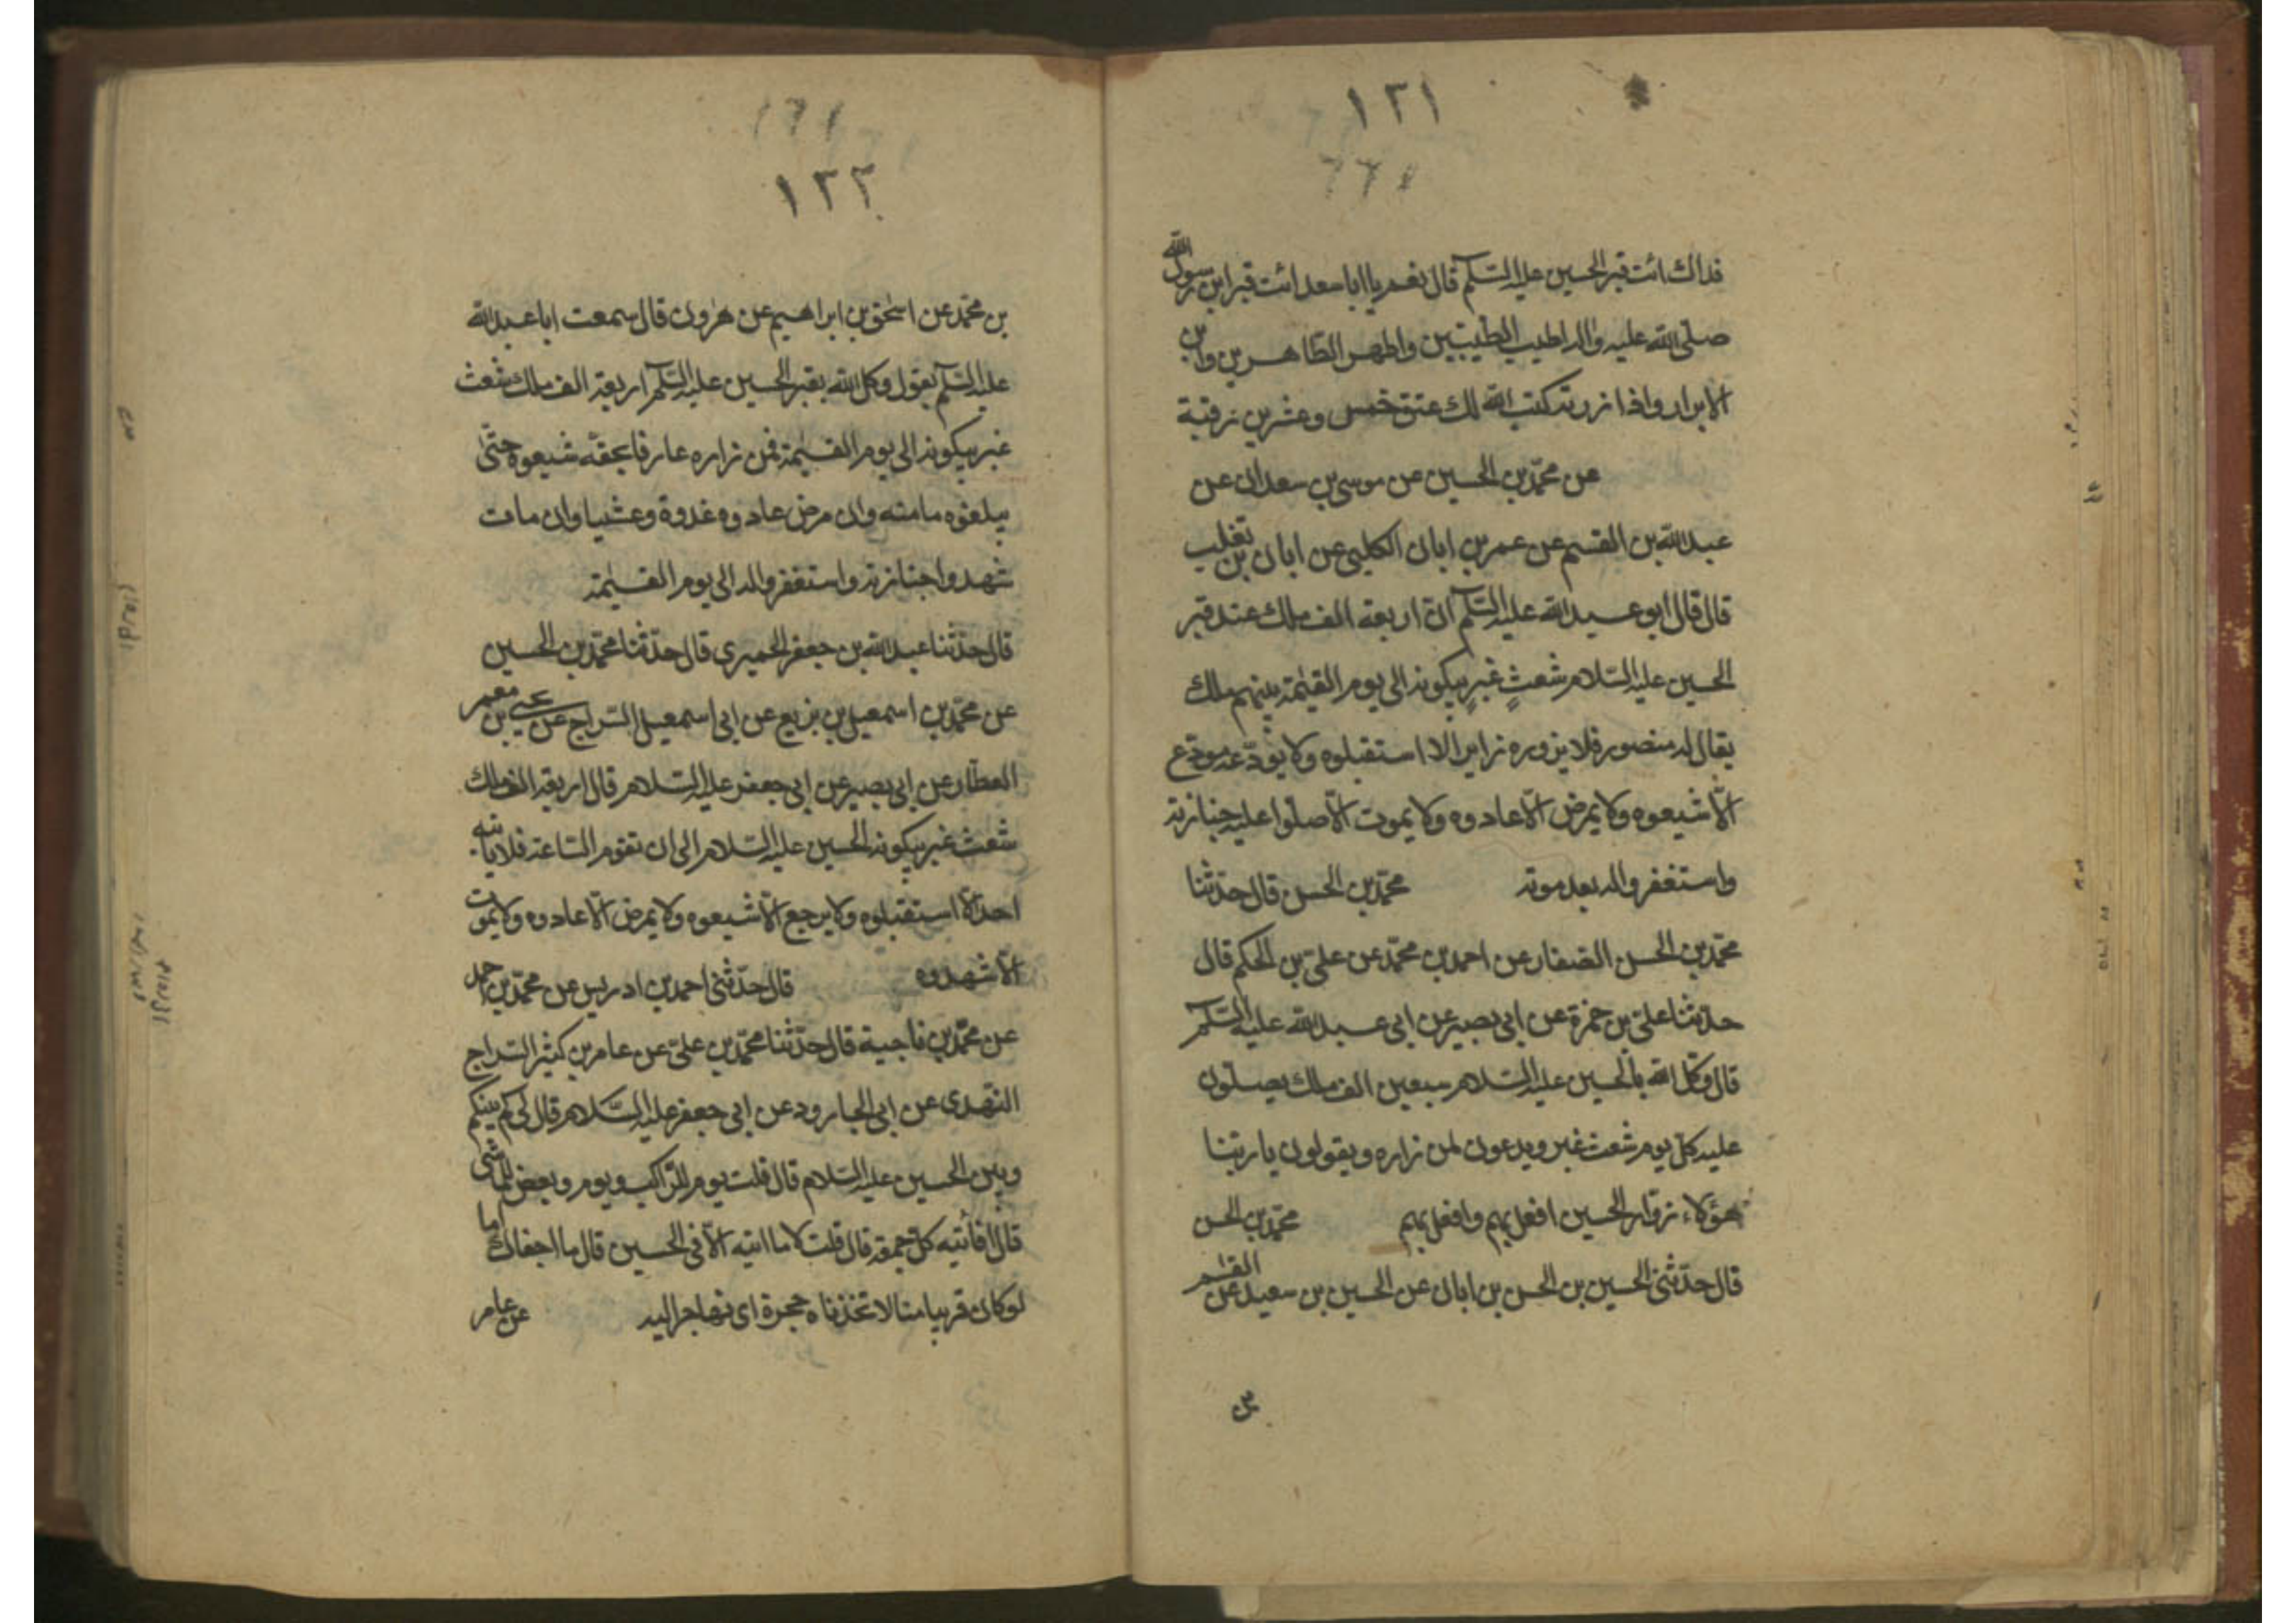 ١٢١
فداك ائت قبر الحسين عليه السّلم قال نعم يا ابا سعد ائت قبر ابن رسول الله
صلّى الله عليه واله اطيب الطيّبين واطهر الطّاهرين وابن
الابرار واذا زرته كتب الله لك عتق خمس وعشرين رقبة
عن محمّد بن الحسين عن موسى بن سعدان عن
عبد الله بن القسم عن عمر بن ابان الكلبى عن ابان بن تغلب
قال قال ابو عبد الله عليه السّلم انّ اربعة الف ملك عند قبر
الحسين عليه السّلام شعثٍ غبرٍ يبكونه الى يوم القيٰمة بينهم ملك
يقال له منصور فلا يزوره زاير الا استقبلوه ولا يودّعه مودّع
الّا شيعوه ولا يمرض الّا عادوه ولا يموت الّا صلّوا عليه جنازته
واستغفروا له بعد موته محمّد بن الحسن قال حدّثنا
محمّد بن الحسن الصّفار عن احمد بن محمّد عن علىّ بن الحكم قال
حدّثنا علىّ بن حمزة عن ابى بصير عن ابى عبد الله عليه السّلم
قال وكّل الله بالحسين عليه السّلام سبعين الف ملك يصلّون
عليه كلّ يوم شعث غبر ويدعون لمن زاره ويقولون يا ربّنا
هؤلاء زوّار الحسين افعل بهم وافعل بهم محمّد بن الحسن
قال حدّثنى الحسين بن الحسن بن ابان عن الحسين بن سعيد عن القٰسم
بن
١٢٢
بن محمّد عن اسحٰق بن ابراهيم عن هٰرون قال سمعت ابا عبد الله
عليه السّلم يقول وكل الله بقبر الحسين عليه السّلم اربعة الف ملك شعث
غبر يبكونه الى يوم القيٰمة فمن زاره عارفا بحقّه شيعوه حتّى
يبلغوه مامنه وان مرض عادوه غدوة وعشيا وان مات
شهدوا جنازته واستغفروا له الى يوم القيٰمة
قال حدّثنا عبد الله بن جعفر الحميرى قال حدّثنا محمّد بن الحسين
عن محمّد بن اسمعيل بن بزيع عن ابى اسمعيل السّراج عن يحيى بن معمر
العطّار عن ابى بصير عن ابى جعفر عليه السّلام قال اربعة الف ملك
شعث غبر يبكونه الحسين عليه السّلام الى ان تقوم السّاعة فلا ياتيه
احد الّا استقبلوه ولا يرجع الّا شيعوه ولا يمرض الّا عادوه ولا يموت
الّا شهدوه قال حدّثنى احمد بن ادريس عن محمّد بن احمد
عن محمّد بن ناجية قال حدّثنا محمّد بن علىّ عن عامر بن كثير السّراج
النّهدى عن ابى الجارود عن ابى جعفر عليه السّلام قال لى كم بينكم
وبين الحسين عليه السّلام قال قلت يوم للرّاكب ويوم وبعض للماشى
قال افاتيه كلّ جمعة قال قلت لا ما اتيه الّا فى الحسين قال ما اجفاك اما
لو كان قريبا منّا لاتخذناه هجرة اى نهاجر اليه عن عامر